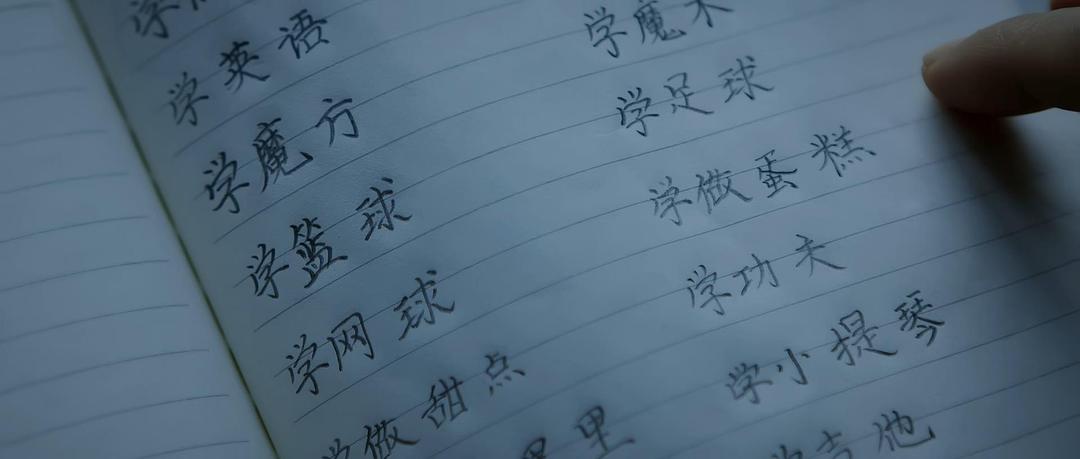 学
学英语
学魔方
学篮球
学网球
学做甜点
里
学魔术
学足球
学做蛋糕
学功夫
学小提琴
学吉他